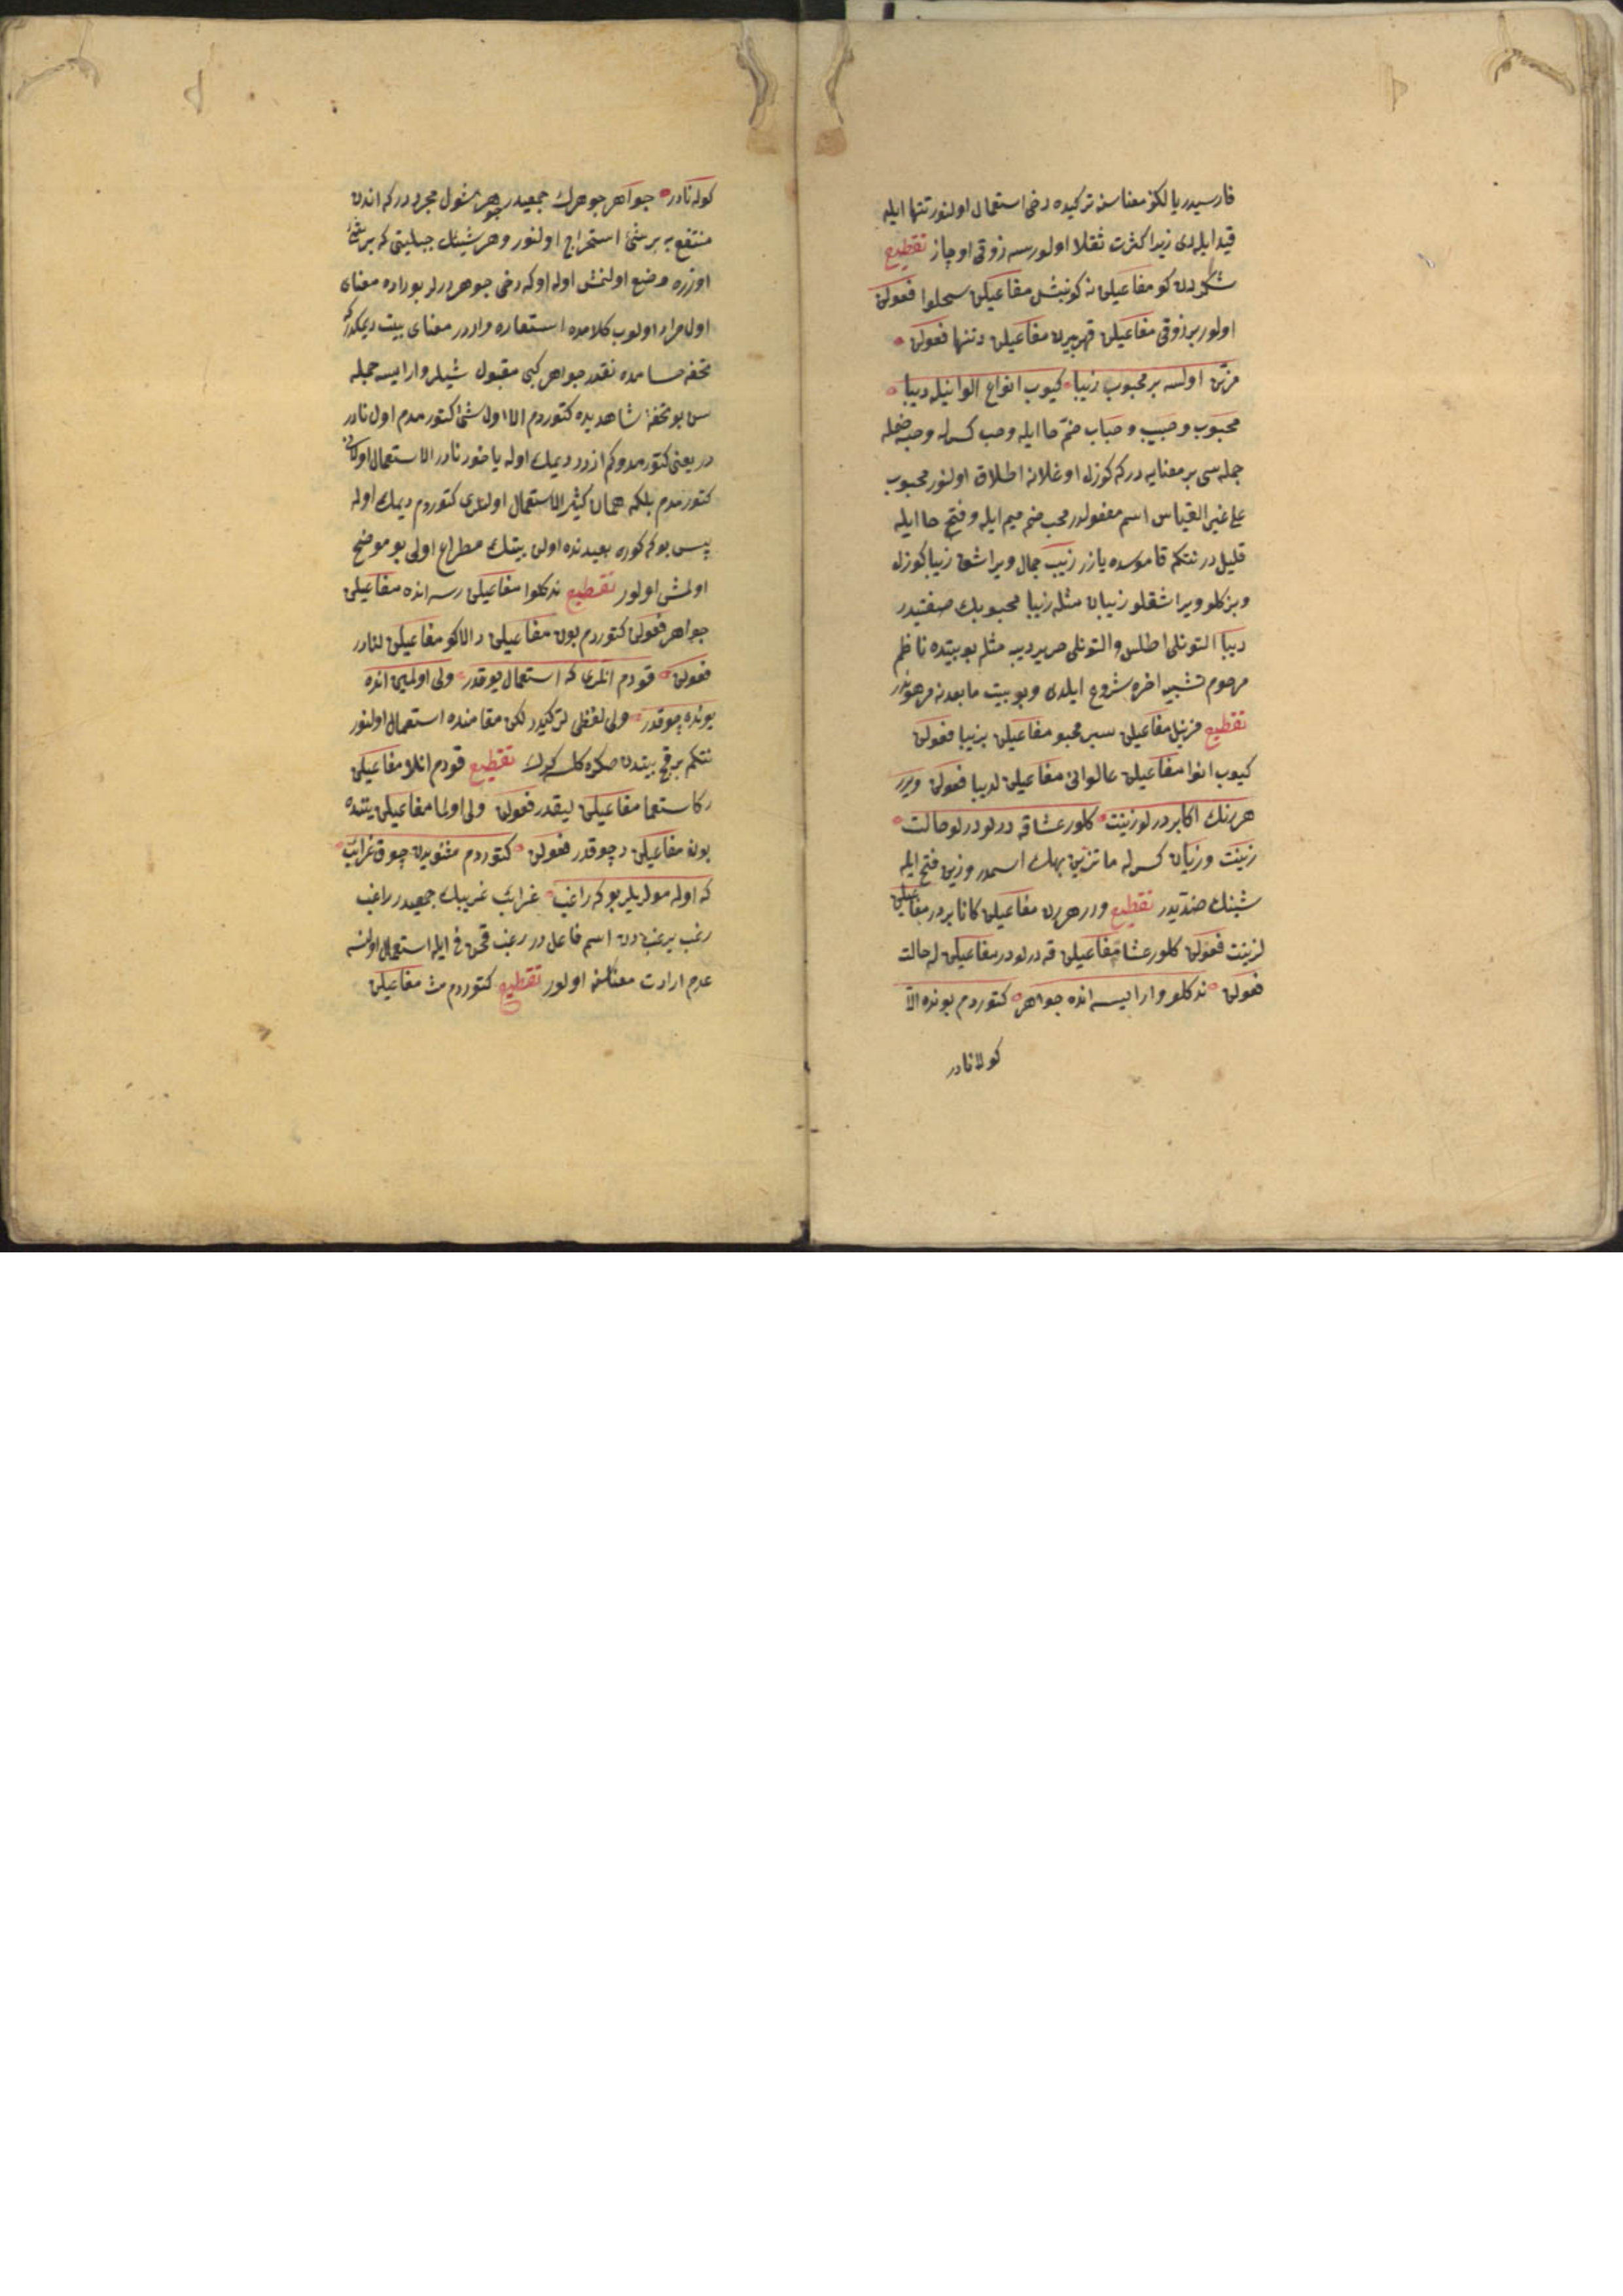 فارسیدر یالکز معناسنه ترکیده دخی استعمال اولنور تنها ایله
قید ایلدی زیرا کثرت ثقلا اولورسه ذوقی اوچاز تقطیع
شکردن کو مفاعیلن نه کونیش مفاعیلن سحلوا فعولن
اولور بر ذوقی مفاعیلن قهربیرن مفاعیلن دتنها فعولن
مزین اولسه بر محبوب زیبا کیوب انواع الوانیله دیبا
محبوب و حبیب و حباب ضم حا ایله و حب کسرله و حبه ضمله
جمله سی بر معنایه در که کوزل اوغلانه اطلاق اولنور محبوب
علی غیر القیاس اسم مفعولدر محب ضم میم ایله و فتح حا ایله
قلیل در نتکم قاموسده یازر زیب جمال ویراشق زیبا کوزل
وبزکلو ویراشقلو زیبان مثله زیبا محبوبک صفتیدر
دیبا التونلی اطلس والتونلی حریر دیبه مثله بو بیتده ناظم
مرحوم تشبیه اخره شروع ایلدی و بو بیت مابعدنه مرهوندر
تقطیع مزینل مفاعیلن سبر محبو مفاعیلن بزیبا فعولن
کیوب انوا مفاعیلن عالوانی مفاعیلن لدیبا فعولن ویرر
هر رنک اکابر درلو زینت کلور عشاقه درلو درلو حالت
زینت وزیان کسرله ما تزین بهك اسمدر وزین فتح ایله
شینك ضدیدر تقطیع ورر هررن مفاعیلن کانابر در مفاعیلن
لزینت فعولن کلور عشا مفاعیلن قه درلودر مفاعیلن له حالت
فعولن ندکلو وارایسه انده جواهر کتوردم بونده الا
کولانادر
کوله نادر جواهر جوهرك جمعیدر جوهر شول حجردر که اندن
منتفع به بر شئ استخراج اولنور و هر شیئك جبلیتی که بر شئ
اوزره وضع اولنمش اوله اوکه دخی جوهر دیرلر بوراده معنای
اول مراد اولوب کلامده استعاره واردر معنای بیت دیمکدر که
تحفه حسامده نقدر جواهر کبی مقبول شیلر وارایسه جمله
سن بو تحفهٔ شاهدیده کتوردم الا اول شئ کتورمدم اول نادر
در یعنی کتورمدوکم ازدر دیمك اوله یاخود نادر الاستعمال اولانی
کتورمدم بلکه همان کثیر الاستعمال اولنلری کتوردم دیمك اوله
پس بو که کوره بعیدنده اولن بیتك مطراع اولی بو موضح
اولمش اولور تقطیع ندکلوا مفاعیلن رسه انده مفاعیلن
جواهر فعولن کتوردم بون مفاعیلن دالاکو مفاعیلن لنادر
فعولن قودم انلری که استعمال یوقدر ولی اولمین انده
بونده چوقدر ولی لفظی لترکیدر لکن مقامنده استعمال اولنور
نتکم بر قچ بیتدن صکره کلسه کرك تقطیع قودم انلا مفاعیلن
رکاستعما مفاعیلن لیقدر فعولن ولی اولما مفاعیلن ینده
بونه مفاعیلن دچوقدر فعولن کتوردم مثنویدن چوق غرایب
که اوله مولویلر بو که راغب غرایب غریبك جمعیدر راغب
رغب یرغبدن اسم فاعل در رغب قچن فی ایله استعمال اولنسه
عدم ارادت معناسنه اولور تقطیع کتوردم مث مفاعیلن